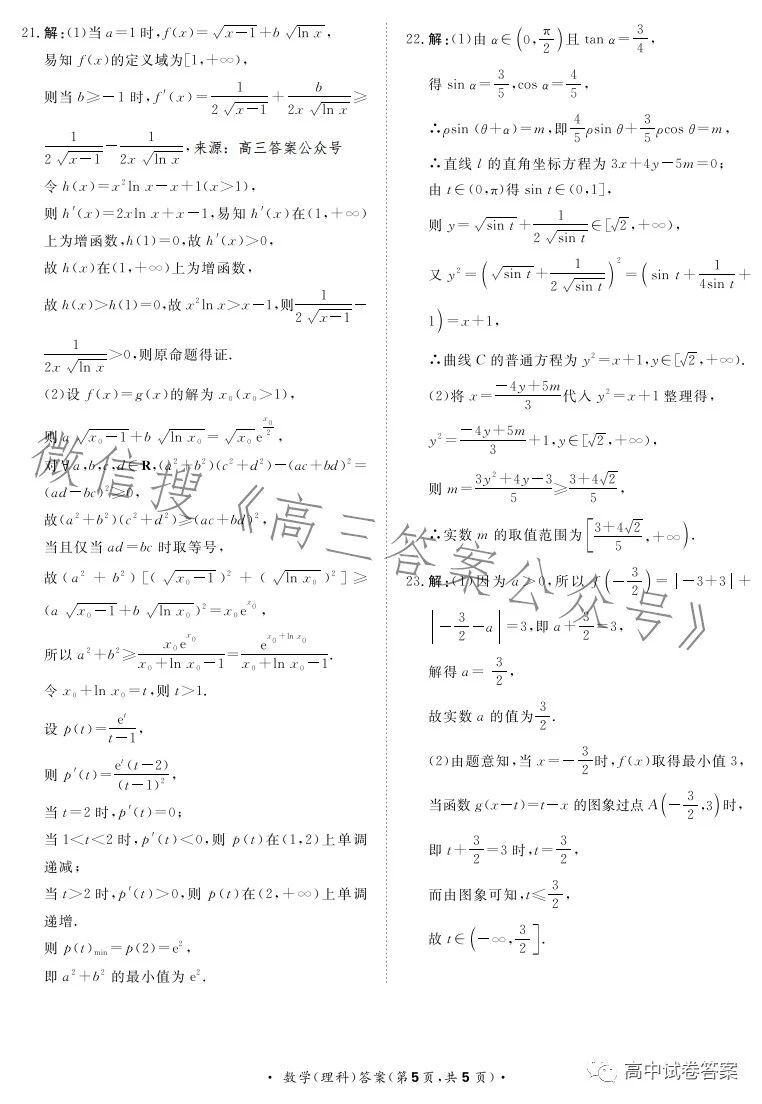 21. 解:(1)当 a=1 时, f(x)=√(x-1)+b√(ln x),
易知 f(x)的定义域为[1,+∞),
则当 b≥-1 时, f′(x)=1/(2√(x-1))+b/(2x√(ln x))≥
1/(2√(x-1))-1/(2x√(ln x)),来源: 高三答案公众号
令 h(x)=x²ln x-x+1(x>1),
则 h′(x)=2xln x+x-1,易知 h′(x)在(1,+∞)
上为增函数,h(1)=0,故 h′(x)>0,
故 h(x)在(1,+∞)上为增函数,
故 h(x)>h(1)=0,故 x²ln x>x-1,则1/(2√(x-1))-
1/(2x√(ln x))>0,则原命题得证.
(2)设 f(x)=g(x)的解为 x₀(x₀>1),
则 a√(x₀-1)+b√(ln x₀)=√(x₀)e^(x₀/2),
对∀a,b,c,d∈R,(a²+b²)(c²+d²)-(ac+bd)²=
(ad-bc)²≥0,
故(a²+b²)(c²+d²)≥(ac+bd)²,
当且仅当 ad=bc 时取等号,
故(a²+b²)[(√(x₀-1))²+(√(ln x₀))²]≥
(a√(x₀-1)+b√(ln x₀))²=x₀e^(x₀),
所以 a²+b²≥x₀e^(x₀)/(x₀+ln x₀-1)=e^(x₀+ln x₀)/(x₀+ln x₀-1).
令 x₀+ln x₀=t,则 t>1.
设 p(t)=e^t/(t-1),
则 p′(t)=e^t(t-2)/(t-1)²,
当 t=2 时,p′(t)=0;
当 1<t<2 时,p′(t)<0,则 p(t)在(1,2)上单调
递减;
当 t>2 时,p′(t)>0,则 p(t)在(2,+∞)上单调
递增.
则 p(t)min=p(2)=e²,
即 a²+b² 的最小值为 e².
22. 解:(1)由 α∈(0,π/2)且 tan α=3/4,
得 sin α=3/5,cos α=4/5,
∴ρsin (θ+α)=m,即4/5ρsin θ+3/5ρcos θ=m,
∴直线 l 的直角坐标方程为 3x+4y-5m=0;
由 t∈(0,π)得 sin t∈(0,1],
则 y=√(sin t)+1/(2√(sin t))∈[√2,+∞),
又 y²=(√(sin t)+1/(2√(sin t)))²=(sin t+1/(4sin t)+
1)=x+1,
∴曲线 C 的普通方程为 y²=x+1,y∈[√2,+∞).
(2)将 x=(-4y+5m)/3代入 y²=x+1 整理得,
y²=(-4y+5m)/3+1,y∈[√2,+∞),
则 m=(3y²+4y-3)/5≥(3+4√2)/5,
∴实数 m 的取值范围为[(3+4√2)/5,+∞).
23. 解:(1)因为 a>0,所以 f(-3/2)=|-3+3|+
|-3/2-a|=3,即 a+3/2=3,
解得 a=3/2,
故实数 a 的值为3/2.
(2)由题意知,当 x=-3/2时,f(x)取得最小值 3,
当函数 g(x-t)=t-x 的图象过点 A(-3/2,3)时,
即 t+3/2=3 时,t=3/2,
而由图象可知,t≤3/2,
故 t∈(-∞,3/2].
微信搜《高三答案公众号》
· 数学(理科)答案(第5页,共5页) ·
高中试卷答案